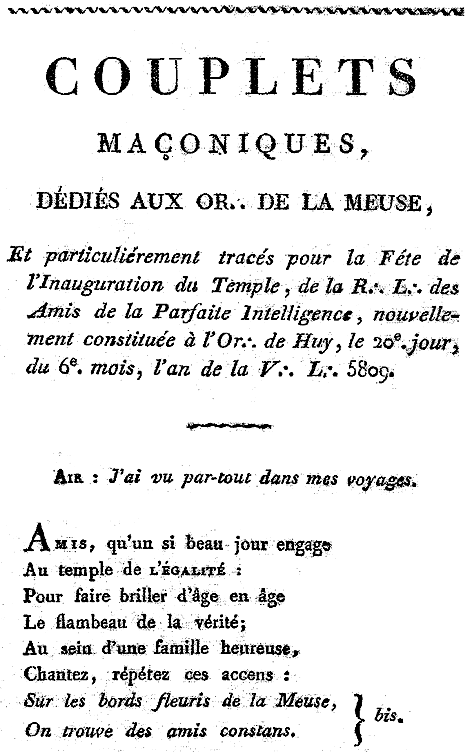 COUPLETS
MAÇONIQUES,
DÉDIÉS AUX OR∴ DE LA MEUSE,
Et particuliérement tracés pour la Féte de
l'Inauguration du Temple, de la R∴ L∴ des
Amis de la Parfaite Intelligence, nouvelle-
ment constituée à l'Or∴ de Huy, le 20e. jour,
du 6e. mois, l'an de la V∴ L∴ 5809.
AIR : J'ai vu par-tout dans mes voyages.
AMIS, qu'un si beau jour engage
Au temple de L'ÉGALITÉ :
Pour faire briller d'âge en âge
Le flambeau de la vérité;
Au sein d'une famille heureuse,
Chantez, répétez ces accens :
Sur les bords fleuris de la Meuse,
On trouve des amis constans. } bis.